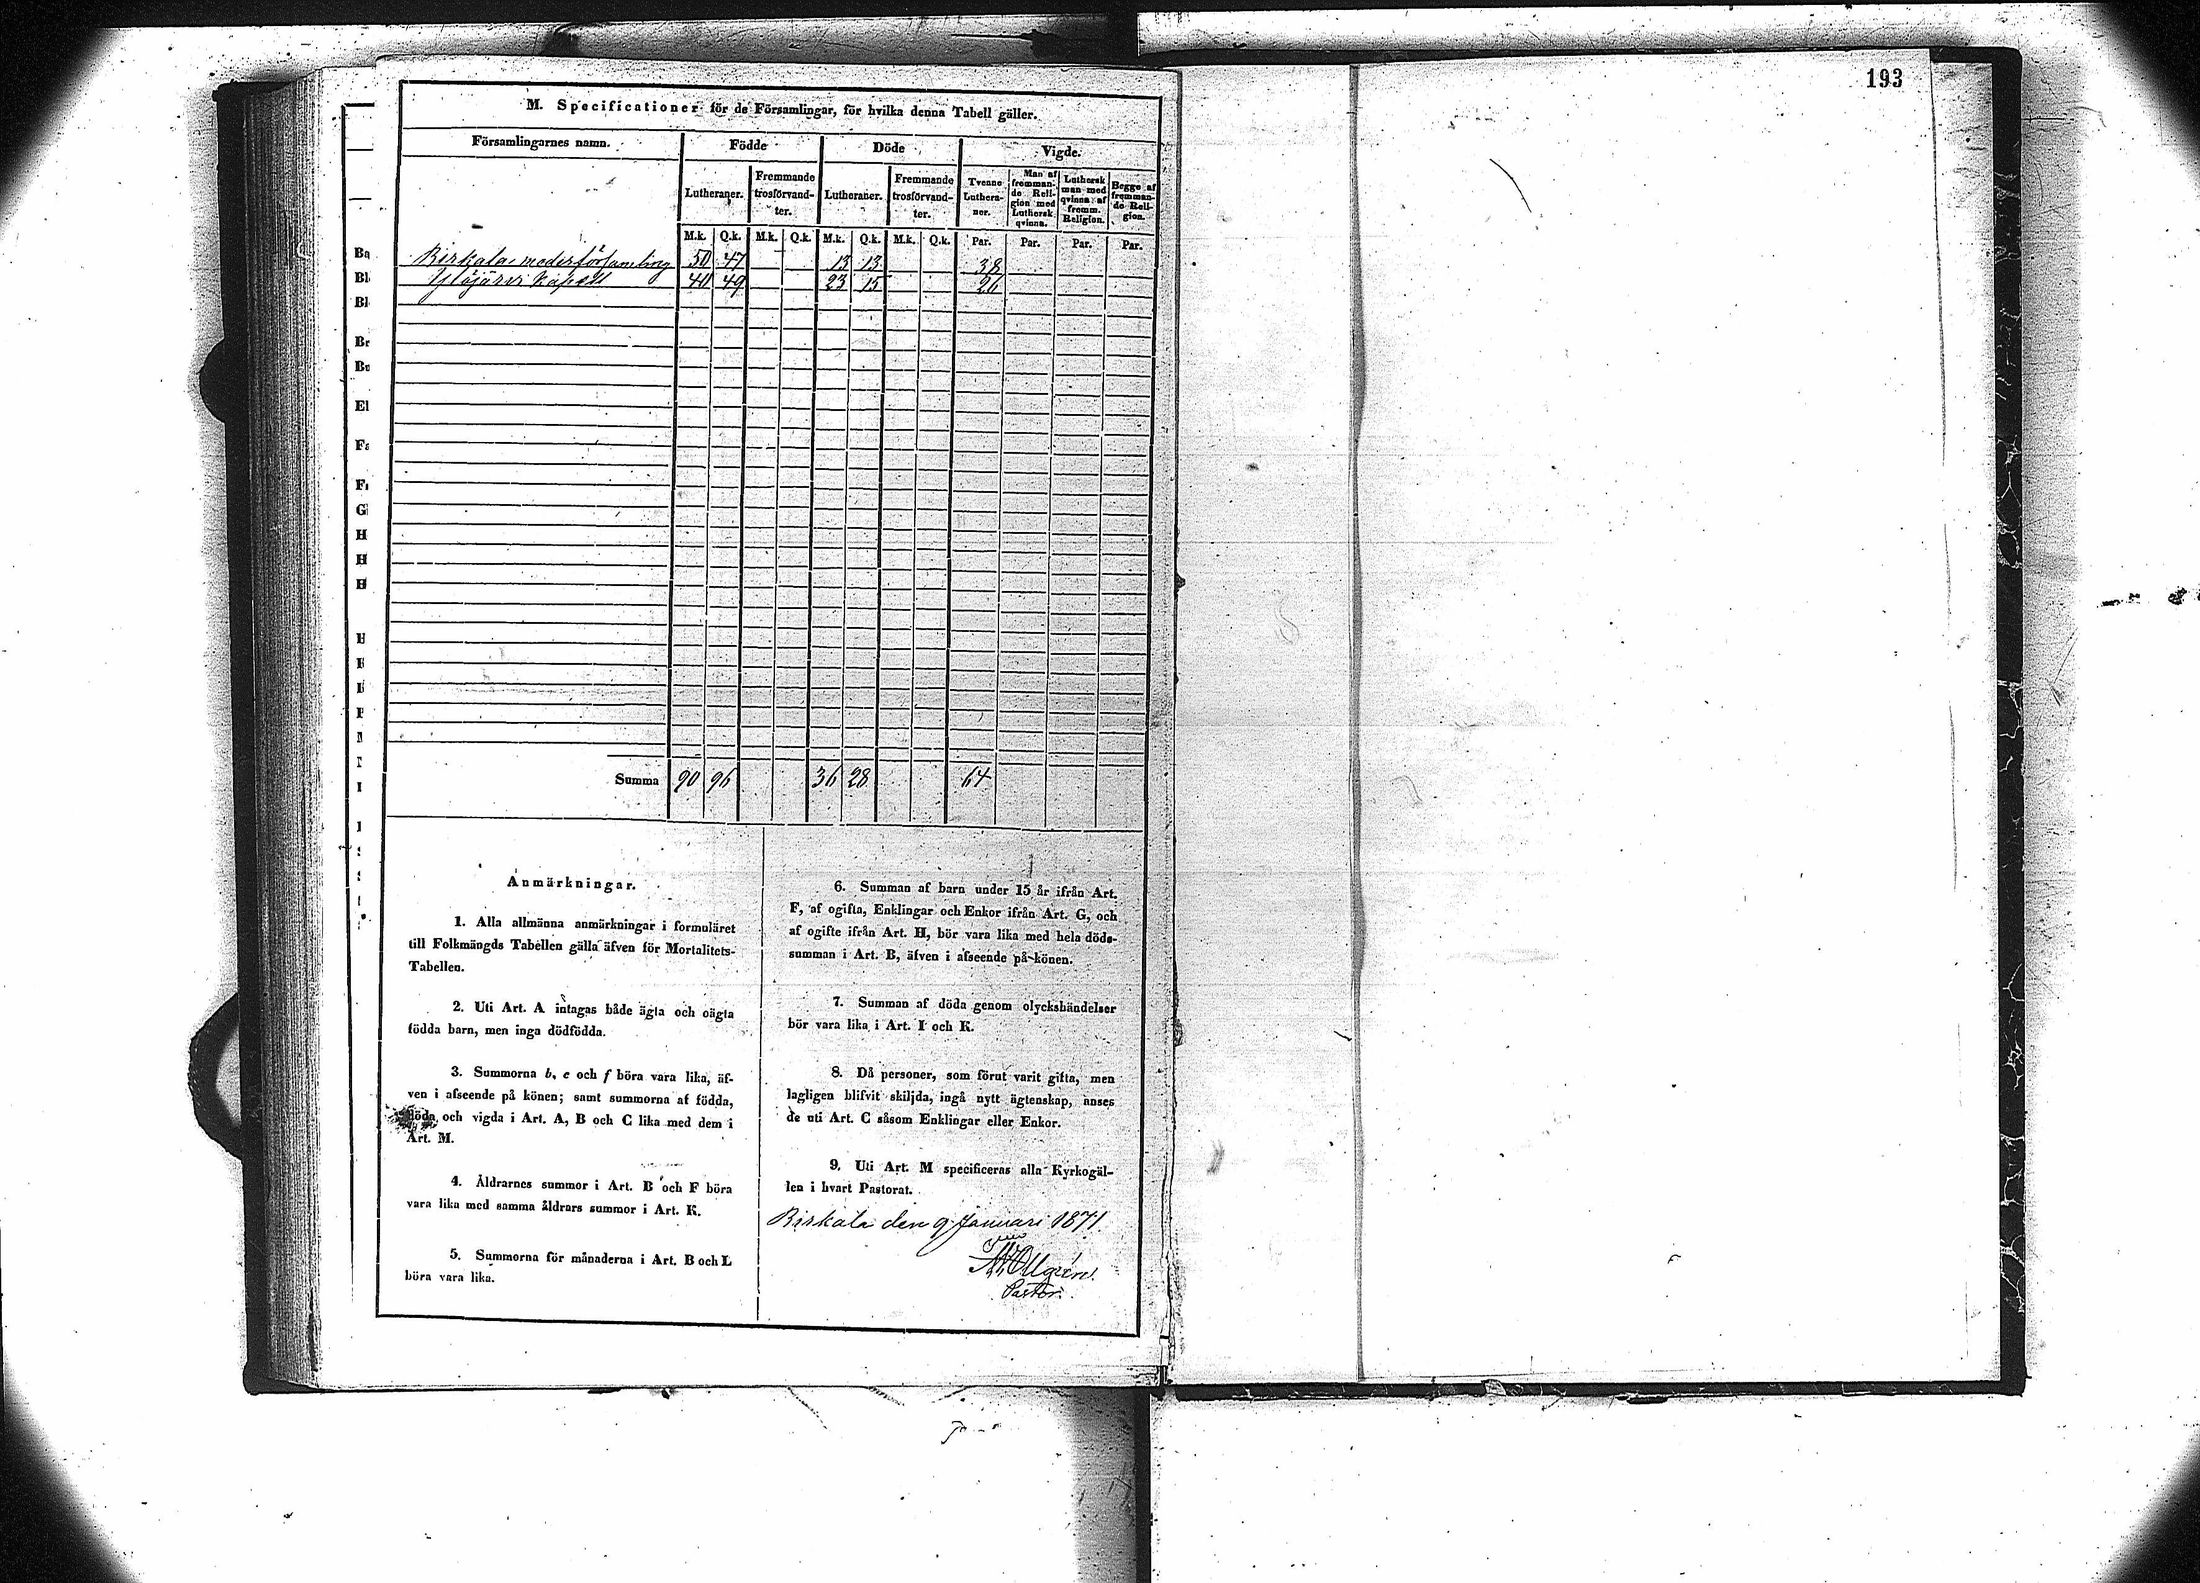 193
M. Specificationer för de Församlingar, för hvilka denna Tabell gäller.
Församlingarnes namn. Födde Döde Vigde.
Lutheraner. Fremmande trosförvandter. Lutheraner. Fremmande trosförvandter. Tvenne Lutheraner. Man af fremmande Religion med Luthersk qvinna. Luthersk man med qvinna af fremm. Religion. Begge af fremmande Religion.
M.k. Q.k. M.k. Q.k. M.k. Q.k. M.k. Q.k. Par. Par. Par. Par.
Birkala moderförsamling 50 47 13 13 38
Ylöjärvi Kapell 40 49 23 15 26
Summa 90 96 36 28 64
Ba
Bl
Bl
Br
Bu
El
Fa
F
G
H
H
H
Anmärkningar.
1. Alla allmänna anmärkningar i formuläret
till Folkmängds Tabellen gälla äfven för Mortalitets-
Tabellen.
2. Uti Art. A intagas både ägta och oägta
födda barn, men inga dödfödda.
3. Summorna b, e och f böra vara lika, äf-
ven i afseende på könen; samt summorna af födda,
döda och vigda i Art. A, B och C lika med dem i
Art. M.
4. Åldrarnes summor i Art. B och F böra
vara lika med samma åldrars summor i Art. K.
5. Summorna för månaderna i Art. B och L
böra vara lika.
6. Summan af barn under 15 år ifrån Art.
F, af ogifta, Enklingar och Enkor ifrån Art. G, och
af ogifte ifrån Art. H, bör vara lika med hela döds-
summan i Art. B, äfven i afseende på könen.
7. Summan af döda genom olyckshändelser
bör vara lika i Art. I och K.
8. Då personer, som förut varit gifta, men
lagligen blifvit skiljda, ingå nytt ägtenskap, anses
de uti Art. C såsom Enklingar eller Enkor.
9. Uti Art. M specificeras alla Kyrkogäl-
len i hvart Pastorat.
Birkala den 9 Januari 1871
Pastor.